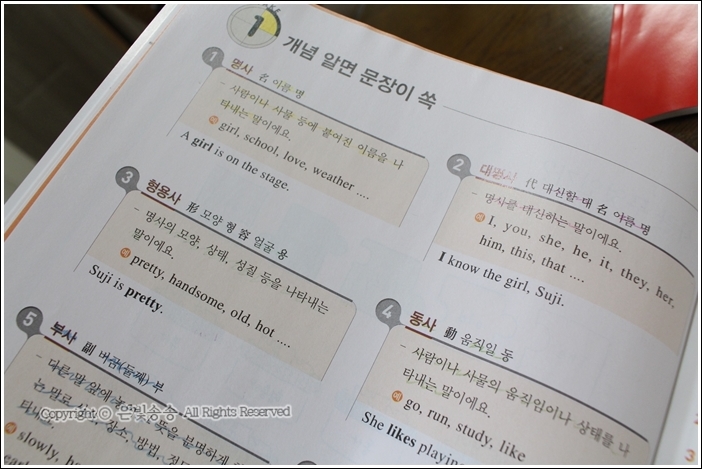 1 개념 알면 문장이 쏙
1 명사 名 이름 명
- 사람이나 사물 등에 붙여진 이름을 나
타내는 말이에요.
예 girl, school, love, weather ....
A girl is on the stage.
2 대명사 代 대신할 대 名 이름 명
- 명사를 대신하는 말이에요.
예 I, you, she, he, it, they, her,
him, this, that ....
I know the girl, Suji.
3 형용사 形 모양 형 容 얼굴 용
- 명사의 모양, 상태, 성질 등을 나타내는
말이에요.
예 pretty, handsome, old, hot ....
Suji is pretty.
4 동사 動 움직일 동
- 사람이나 사물의 움직임이나 상태를 나
타내는 말이에요.
예 go, run, study, like
She likes playing
5 부사 副 버금(둘째) 부
- 다른 말 앞에 뜻을 분명하게
는 말로 장소, 방법,
타내요.
예 slowly,
Copyright © 은빛송송 All Rights Reserved